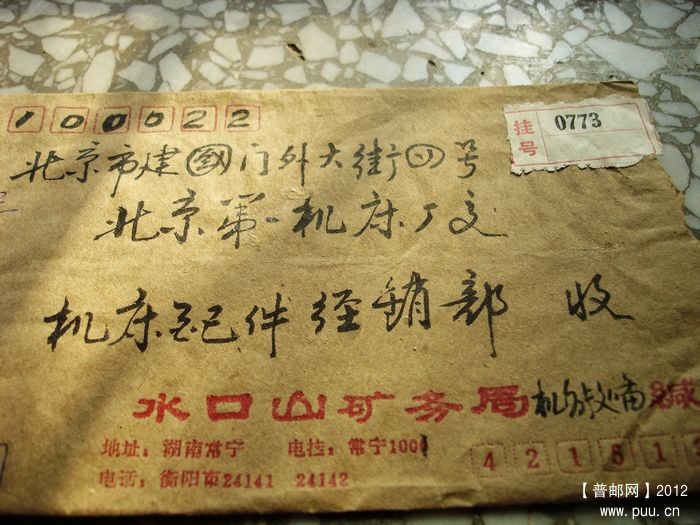 100022
挂号 0773
北京市建国门外大街四号
北京第一机床厂交
机床配件经销部 收
水口山矿务局 缄
地址：湖南常宁 电挂：常宁1001
电话：衡阳市24141 24142
421513
【普邮网】2012
www.puu.cn